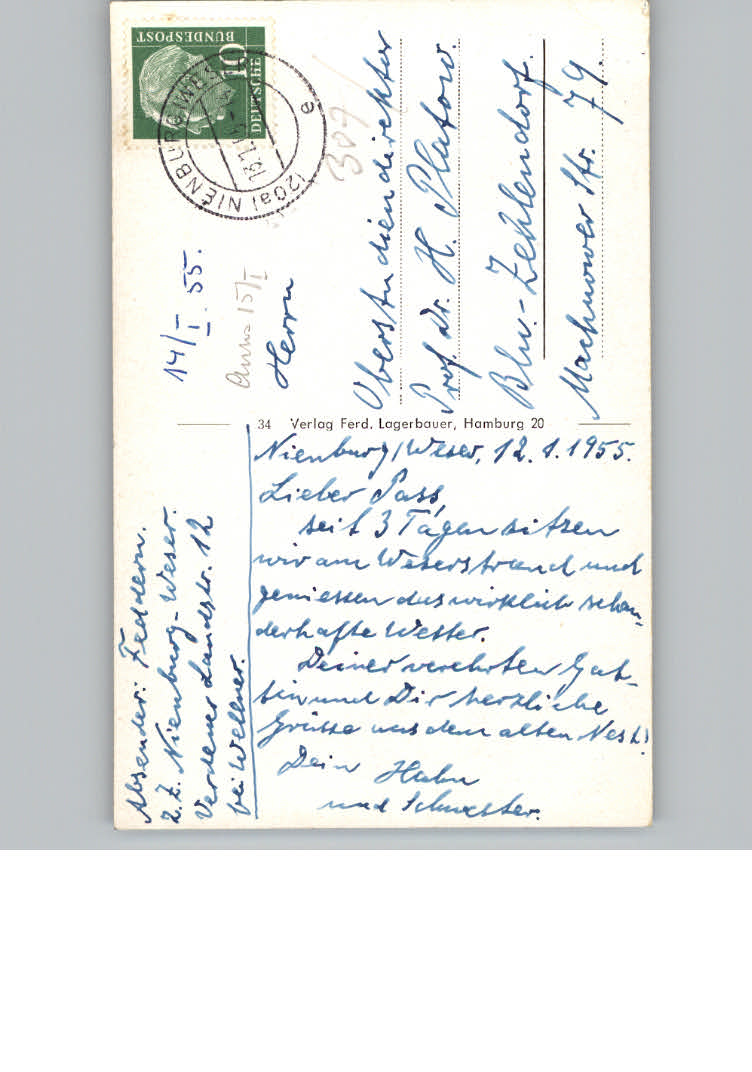 DEUTSCHE
BUNDESPOST
10
(20a) NIENBURG (WESER)
a
309
14/I. 55.
Antw 15/I
Herrn
Oberstudiendirektor
Prof. Dr. H. Platow.
Bln.-Zehlendorf.
Machnower Str. 79.
34 Verlag Ferd. Lagerbauer, Hamburg 20
Nienburg/Weser, 12.1.1955.
Lieber Pass,
seit 3 Tagen sitzen
wir am Weserstrand und
geniessen das wirklich schau-
derhafte Wetter.
Deiner verehrten Gat-
tin und Dir herzliche
Grüsse aus dem alten Nest!
Dein Hahn
und Schwester.
Absender: Feddern.
z. Z. Nienburg-Weser.
Verdener Landstr. 12
bei Wellner.